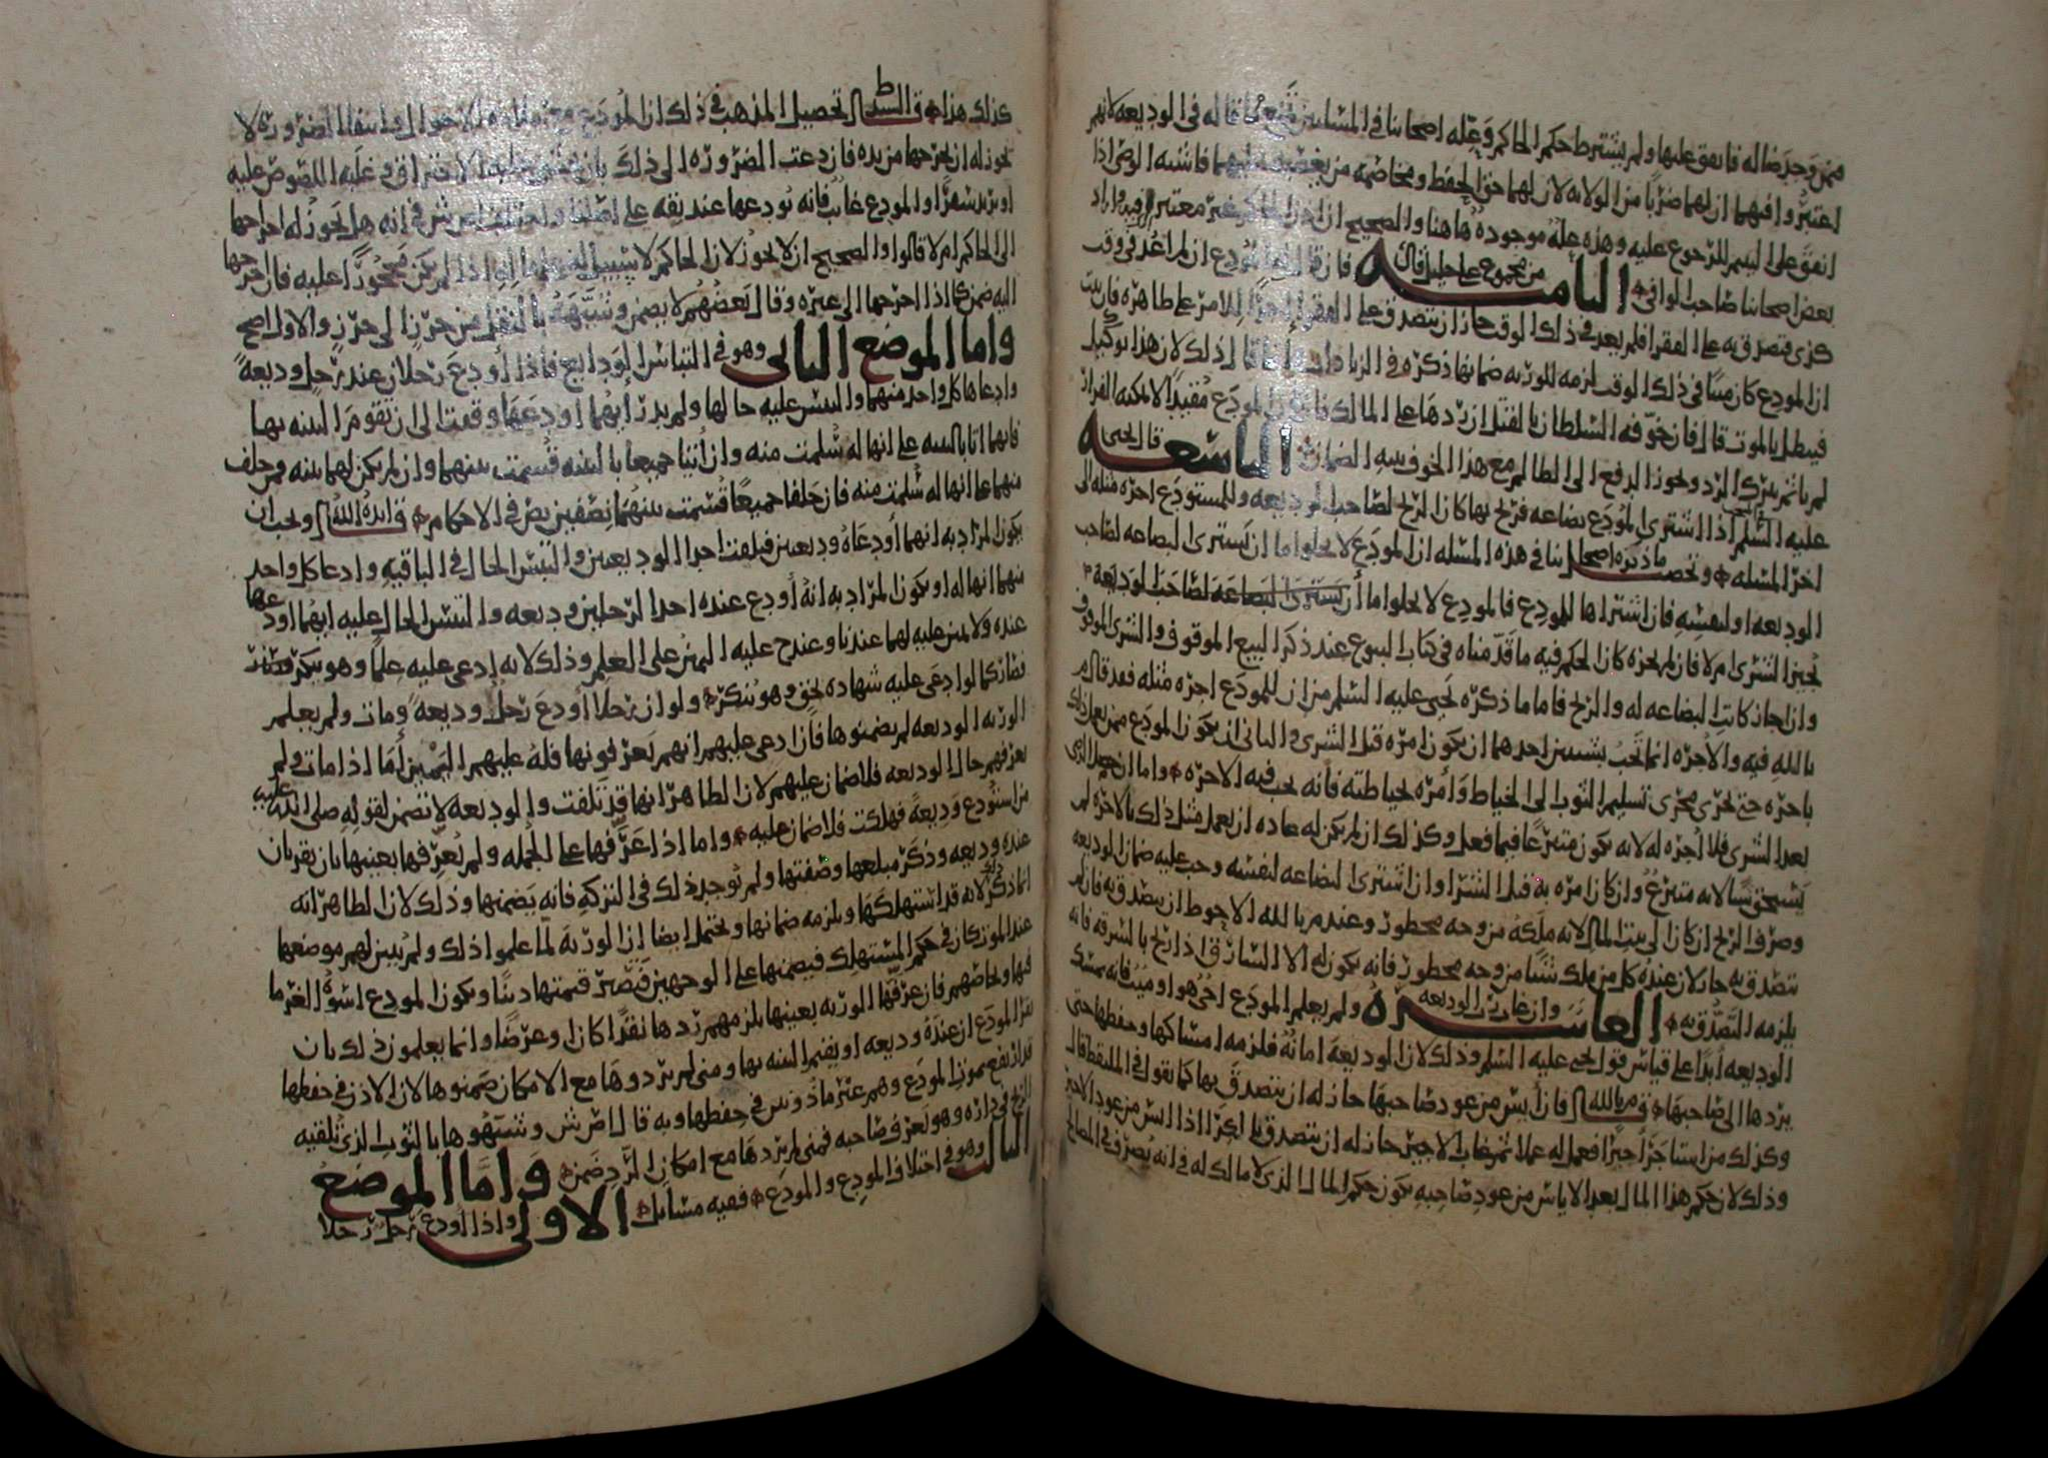 فمن وجد ضاله فانفق عليها ولم يشترط حكم الحاكم وعلله اصحابنا في المسلمين جميعا بما قاله في الوديعه لانهم
اعتبروا فيهما ان لهما ضربا من الولايه لان لهما حق الحفظ ومخاصمه من يغصبه فاشبه الوصي اذا
انفق على اليتيم للرجوع عليه وهذه عله موجوده هاهنا والصحيح ان اذن الحاكم غير معتبر
بعض اصحابنا صاحب الوافي الثامنه من مجموع علي خليل قال فان قال المودع ان لم اعد في وقت
كذى فتصدق به على الفقرا فلم يعد في ذلك الوقت جاز ان يتصدق على الفقرا للامر على ظاهره فان بين
ان المودع كان ميتا في ذلك الوقت لزمه للورثه ضمانها ذكره في الزيادات قال ذلك لان هذا توكيل
فيبطل بالموت قال فان خوفه السلطان بالقتل ان يردها على المالك
لم ياثم بترك الرد ويجوز الدفع الى الظالم مع هذا الخوف بنيه الضمان التاسعه قال يحيى
عليه السلم اذا اشترى المودع بضاعه فربح بها كان الربح لصاحب الوديعه وللمستودع اجره مثله الى
اخر المسله وتحصيل ما ذكره اصحابنا في هذه المسله ان المودع لا يخلوا اما ان يشتري البضاعه لصاحب
الوديعه او لنفسه فان اشتراها للمودع فالمودع لا يخلوا اما أن يشتري البضاعه لصاحب الوديعه
يجيز الشرى ام لا فان لم يجزه كان الحكم فيه ما قدمناه في كتاب البيوع عند ذكر البيع الموقوف والشرى الموقوف
وان اجاز كانت البضاعه له والربح فاما ما ذكره يحيى عليه السلم من ان للمودع اجره مثله فقد قال م
بالله فيه والاجره انما تجب بشيين احدهما ان يكون امره قبل الشرى والثاني ان يكون المودع ممن يعمل ذلك
باجره حتى يجري مجرى تسليم الثوب الى الخياط وأمره بخياطته فانه يجب فيه الاجره واما ان عمل الذي
بعد الشرى فلا أجره له لانه يكون متبرعا فيما فعل وكذلك ان لم يكن له عاده ان يعمل مثل ذلك بالاجره لم
يستحق شيا لانه متبرع وان كان امره به قبل الشرا وان اشترى البضاعه لنفسه وجب عليه ضمان الوديعه
وصرف الربح ان كان الى بيت المال لانه ملكه من وجه محظور وعند م بالله الاحوط ان يتصدق به فان لم
يتصدق به جاز لان عنده كل من ملك شيئا من وجه محظور فانه يكون له الا السارق اذا ربح بالسرقه فانه
يلزمه التصدق به العاشره وان غاب رب الوديعه ولم يعلم المودع احي هو او ميت فانه يمسك
الوديعه أبدا على قياس قول يحيى عليه السلم وذلك لان الوديعه امانه فلزمه امساكها وحفظها حتى
يردها الى صاحبها ق م بالله فان أيس من عود صاحبها جاز له ان يتصدق بها كما نقول في الملتقط قال
وكذلك من استاجر اجيرا فعمل له عملا ثم غاب الاجير جاز له ان يتصدق بالكرا اذا ايس من عود الاجير
وذلك لان حكم هذا المال بعد الاياس من عود صاحبه يكون حكم المال الذي لا مالك له في انه يصرف في المصالح
كذلك هذا قال السيد ط تحصيل المذهب في ذلك ان المودع
يجوز له ان يخرجها من يده فان دعت الضروره الى ذلك
او يريد سفرا والمودع غائب فانه يودعها عند ثقه على في انه هل يجوز له اخراجها
الى الحاكم ام لا قالوا والصحيح ان لا يجوز لان الحاكم لا اذا لم يكن محجورا عليه فان اخرجها
اليه ضمن كما اذا اخرجها الى غيره وقال بعضهم لا يضمن وشبهه بالنقل من حرز الى حرز والاول اصح
واما الموضع الثاني وهو في التباس الودايع فاذا أودع رجلان عند رجل وديعه
وادعاها كل واحد منهما والتبس عليه حالها ولم يدر أيهما أودعها وقفت الى ان تقوم البينه بها
فايهما اتا بالبينه على انها له سلمت منه وان أتيا جميعا بالبينه قسمت بينهما وان لم يكن لهما بينه ومن حلف
منهما على انها له سلمت منه فان حلفا جميعا قسمت بينهما نصفين نص في الاحكام ق ايده الله ويجب ان
يكون المراد به انهما أودعاه وديعتين فتلفت احدا الوديعتين والتبس الحال في الباقيه وادعا كل واحد
منهما انها له او يكون المراد به انه أودع عنده احدا الرجلين وديعه والتبس الحال عليه ايهما اودعها
عنده ولا يمين عليه لهما عندنا وعند ح عليه اليمين على العلم وذلك لانه إدعى عليه علما وهو ينكر
فصار كما لو ادعى عليه شهاده بحق وهو ينكر ولو ان رجلا أودع رجلا وديعه ومات ولم يعلم
الورثه الوديعه لم يضمنوها فان ادعى عليهم انهم يعرفونها فله عليهم اليمين أما اذا مات ولم
يعرفهم حال الوديعه فلا ضمان عليهم لان الظاهر انها قد تلفت والوديعه لا تضمن لقوله صلى الله عليه
من استودع وديعه فهلكت فلا ضمان عليه واما اذا عرفها على الجمله ولم يعرفها بعينها بان يقر بان
عنده وديعه وذكر مبلغها وصفتها ولم توجد ذلك في التركه فانه يضمنها وذلك لان الظاهر انه
انما ذكر لانه قد استهلكها ويلزمه ضمانها ويحتمل ايضا ان الورثه لما علموا ذلك ولم يبين لهم موضعها
عند الموت كان في حكم المستهلك فيضمنها على الوجهين فتصير قيمتها دينا ويكون المودع اسوه الغرما
فيها ويحاصهم فان عرفها الورثه بعينها يلزمهم ردها نقدا كان او عرضا وانما يعلمون ذلك بان
يقر المودع ان عنده وديعه او يقيم البينه بها ومتى لم يردوها مع الامكان ضمنوها لان الاذن في حفظها
قد ارتفع بموت المودع وهم غير ماذونين في حفظها وبه قال اص ش وشبهوها بالثوب الذي تلقيه
الريح في داره وهو يعرف صاحبه فمتى لم يردها مع امكان الرد ضمن واما الموضع
الثالث وهو في اختلاف المودع والمودع ففيه مسايل الاولى واذا اودع رجل رجلا